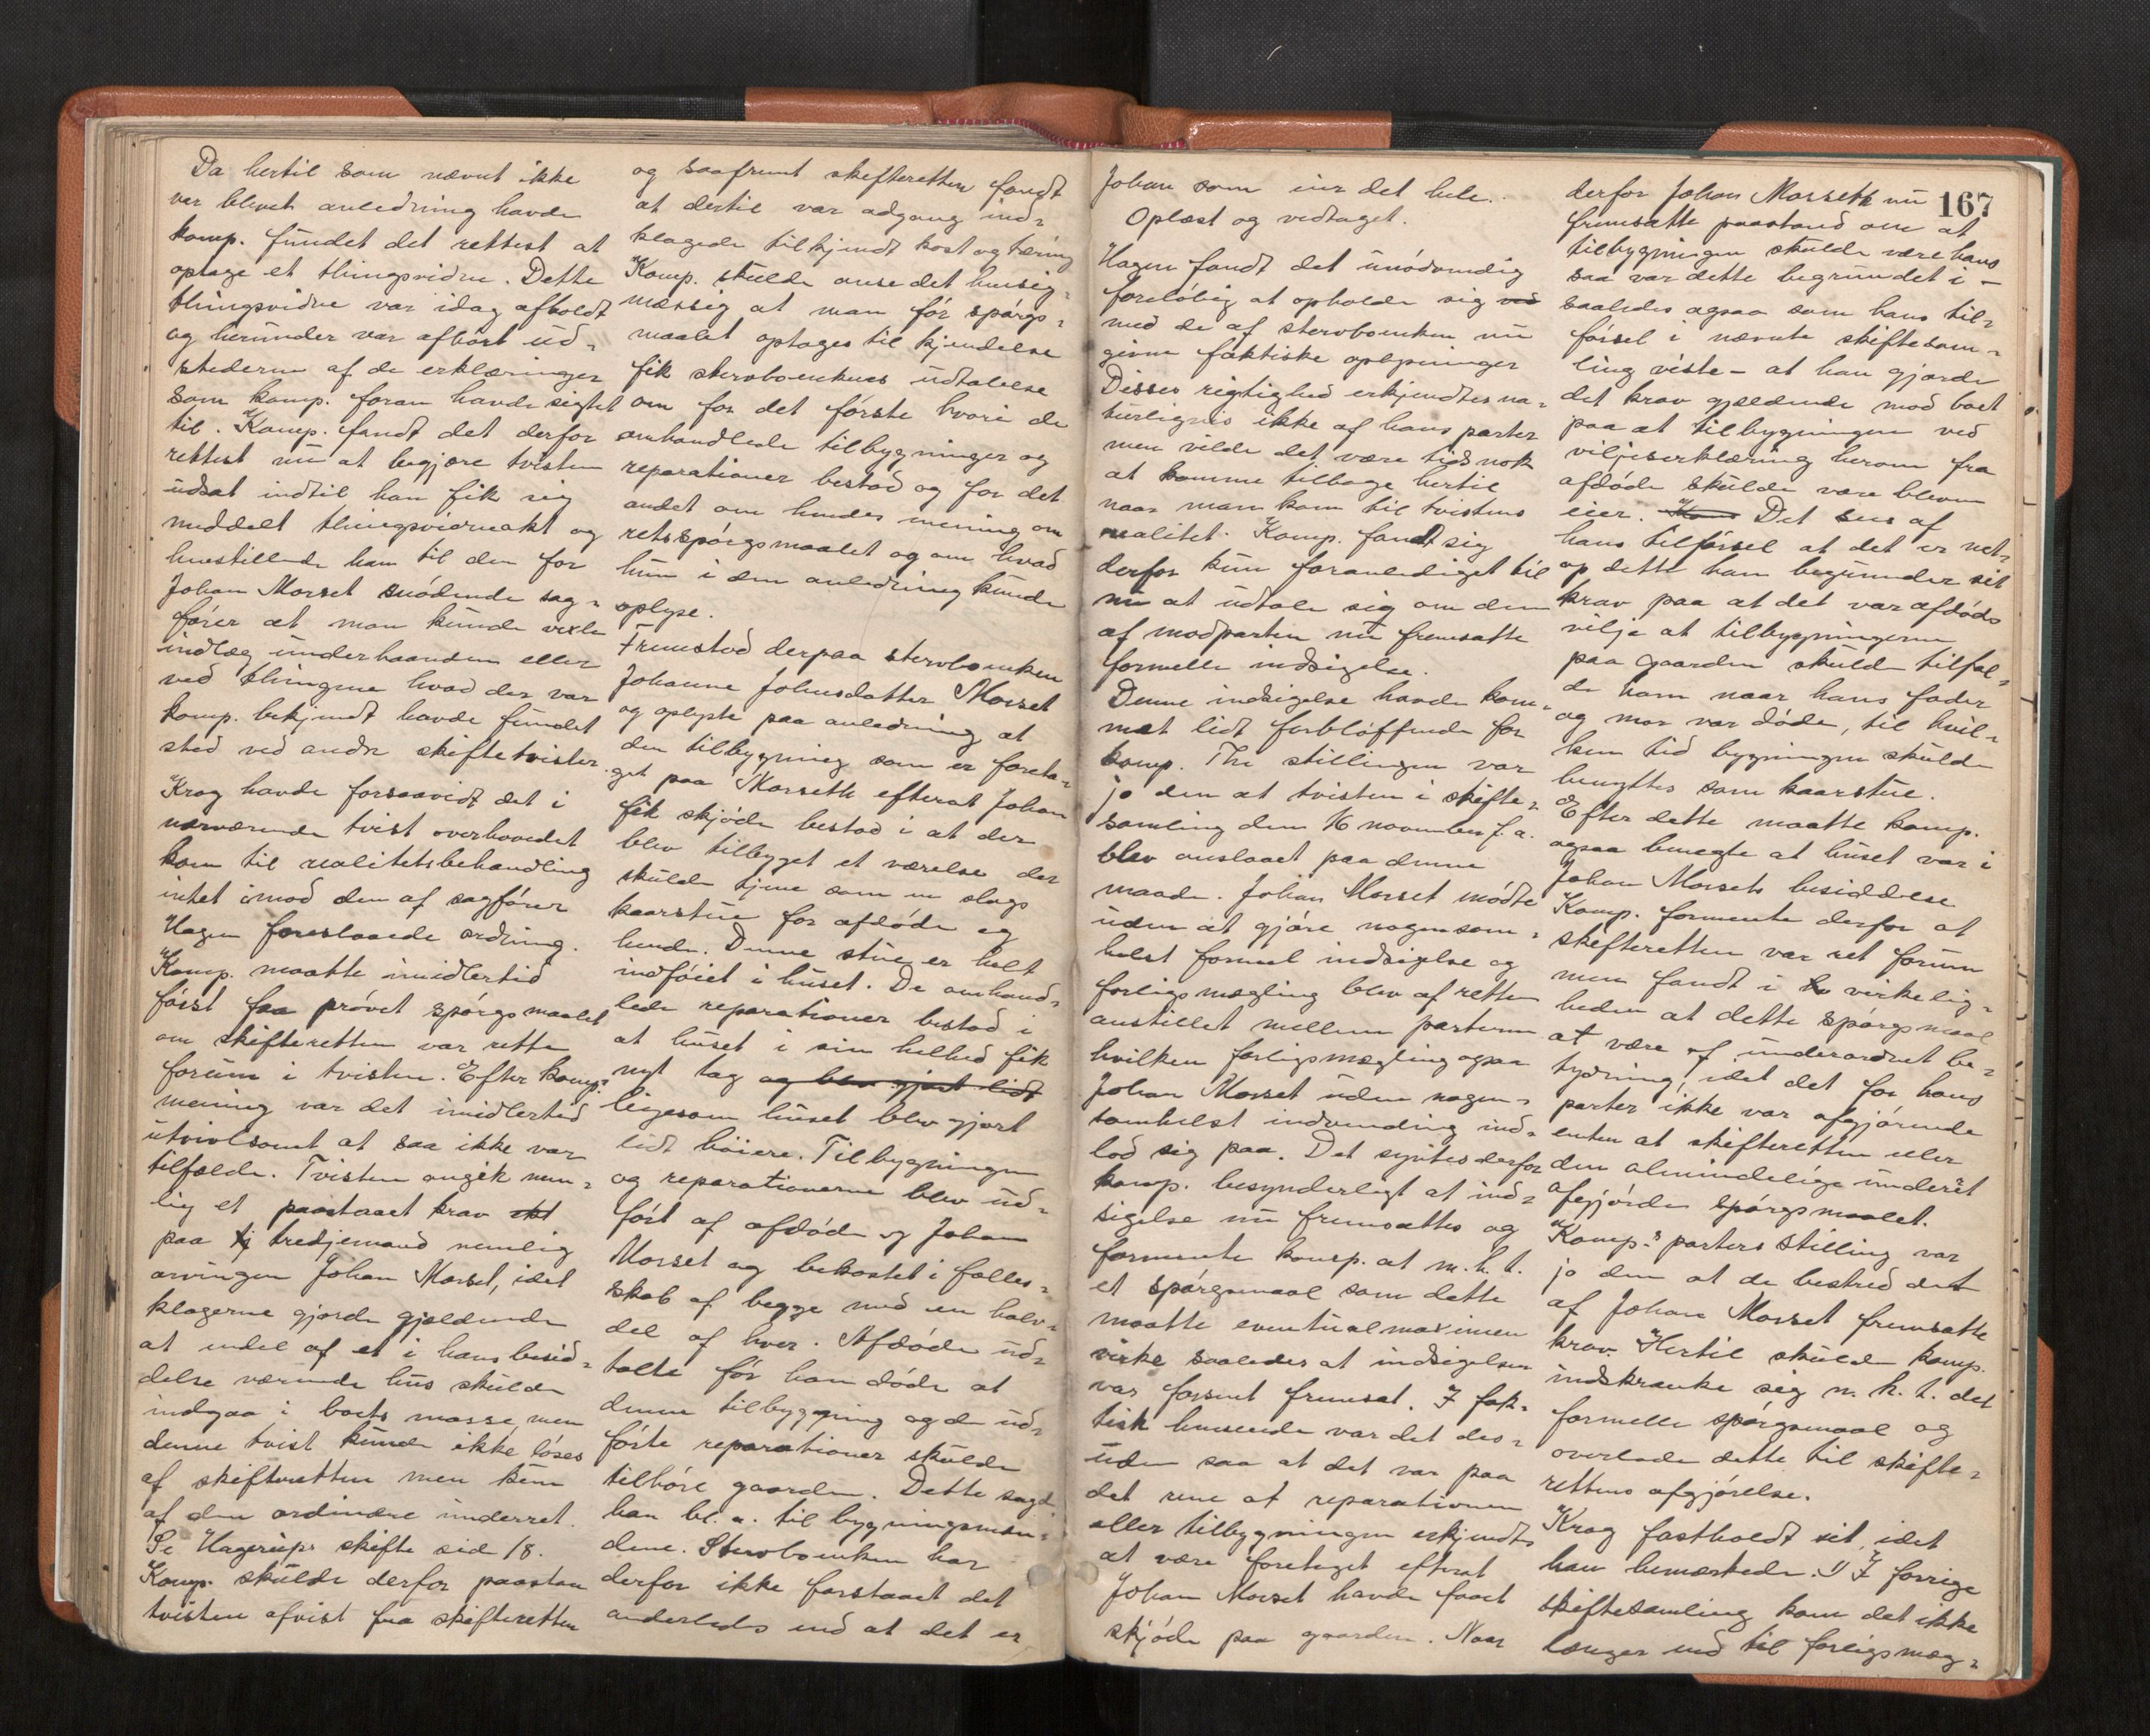 Da hertil som nævnt ikke
var blevet anledning havde
komp. fundet det rettest at
optage et thingsvidne. Dette
thingsvidne var idag afholdt
og herunder var afhørt ud-
stederne af de erklæringer
som komp. foran havde sigtet
til. Komp. fandt det derfor
rettest nu at begjære tvisten
udsat indtil han fik sig
meddelt thingsvidneakt og
henstillede han til den for
Johan Morset mødende sag-
fører at man kunde vexle
indlæg underhaanden eller
ved thingene hvad der var
komp. bekjendt havde fundet
sted ved andre skiftetvister.
Krog havde forsaavidt det i
nærværende tvist overhovedet
kom til realitetsbehandling
intet imod den af sagfører
Hagen foreslaaede ordning.
Komp. maatte imidlertid
først faa prøvet spørgsmaalet
om skifteretten var rette
forum i tvisten. Efter komps
mening var det imidlertid
utvivlsomt at saa ikke var
tilfælde. Tvisten angik nem-
lig et paastaaet krav
paa tredjemand nemlig
arvingen Johan Morset, idet
klagerne gjorde gjældende
at endel af et i hans besid-
delse værende hus skulde
indgaa i boets masse, men
denne tvist kunde ikke løses
af skifteretten men kun
af den ordinære underret.
Se Hagerups skifte sid 18.
Komp. skulde derfor paastaa
tvisten afvist fra skifteretten
og saafremt skifteretten fandt
at dertil var adgang ind-
klagede tilkjendt kost og tæring
Komp. skulde anse det hensig-
mæssig at man før spørgs-
maalet optages til kjendelse
fik stervboenkens udtalelse
om for det første hvori de
omhandlede tilbygninger og
reparationer bestod og for det
andet om hendes mening om
retsspørgsmaalet og om hvad
hun i den anledning kunde
oplyse.
Fremstod derpaa stervboenken
Johanne Johnsdatter Morset
og oplyste paa anledning at
den tilbygning som er foreta-
get paa Morseth efterat Johan
fik skjøde bestod i at der
blev tilbygget et værelse der
skulde tjene som en slags
kaarstue for afdøde og
hende. Denne stue er helt
indføiet i huset. De omhand-
lede reparationer bestod i
at huset i sin helhed fik
nyt tag og blev gjort lidt
ligesom huset blev gjort
lidt høiere. Tilbygningen
og reparationerne blev ud-
ført af afdøde og Johan
Morset og bekostet i fælles-
skab af begge med en halv-
del af hver. Afdøde ud-
talte før han døde at
denne tilbygning og de ud-
førte reparationer skulde
tilhøre gaarden. Dette sagde
han bl. a. til bygningsmæn-
dene. Stervboenken har
derfor ikke forstaaet det
anderledes end at det er
167
Johan som eier det hele.
Oplæst og vedtaget.
Hagen fandt det unødvendig
foreløbig at opholde sig ved
med de af stervboenken nu
givne faktiske oplysninger
Disses rigtighed erkjendtes na-
turligvis ikke af hans parter
men vilde det være tids nok
at komme tilbage hertil
naar man kom til tvistens
realitet. Komp. fandt sig
derfor kun foranlediget til
nu at udtale sig om den
af modparten nu fremsatte
formelle indsigelse.
Denne indsigelse havde kom-
met lidt forbløffende for
komp. Thi stillingen var
jo den at tvisten i skifte-
samling den 16 november f. a.
blev anslaaet paa denne
maade. Johan Morset mødte
uden at gjøre nogensom-
helst formel indsigelse og
forligsmægling blev af retten
anstillet mellem parterne
hvilken forligsmægling ogsaa
Johan Morset uden nogen-
somhelst indvending ind-
lod sig paa. Det syntes derfor
komp. besynderligt at ind-
sigelse nu fremsattes og
formente komp. at m. h. t.
et spørgsmaal som dette
maatte eventualmaximen
virke saaledes at indsigelsen
var forsent fremsat. I fak-
tisk henseende var det des-
uden saa at det var paa
det rene at reparationen
eller tilbygningen erkjendtes
at være foretaget efterat
Johan Morset havde faaet
skjøde paa gaarden. Naar
derfor Johan Morseth nu
fremsatte paastand om at
tilbygningen skulde være hans
saa var dette begrundet i -
saaledes ogsaa som hans til-
førsel i nævnte skiftesam-
ling viste - at han gjorde
det krav gjældende mod boet
paa at tilbygningen ved
viljeserklæring herom fra
afdøde skulde være bleven
eier. Det sees af
hans tilførsel at det er net-
op dette han begrunder sit
krav paa at det var afdødes
vilje at tilbygningerne
paa gaarden skulde tilfal-
de ham naar hans fader
og mor var døde, til hvil-
ken tid bygningen skulde
benyttes som kaarstue.
Efter dette maatte komp.
ogsaa benægte at huset var i
Johan Morsets besiddelse
Komp. formente derfor at
skifteretten var ret forum
men fandt i virkelig-
heden at dette spørgsmaal
at være af underordnet be-
tydning, idet det for hans
parter ikke var afgjørende
enten at skifteretten eller
den almindelige underret
afgjorde spørgsmaalet.
Komp.s parters stilling var
jo den at de bestred det
af Johan Morset fremsatte
krav. Hertil skulde komp.
indskrænke sig m. h. t. det
formelle spørgsmaal og
overlade dette til skifte-
rettens afgjørelse.
Krog fastholdt sit, idet
han bemærkede: 1) I forrige
skiftesamling kom det ikke
længer end til forligsmæg-